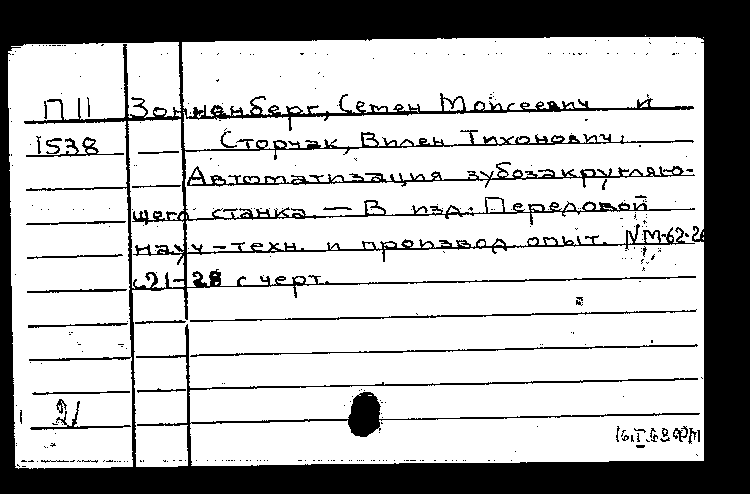 П11 Зонненберг, Семен Моисеевич и
1538 Сторчак, Вилен Тихонович.
Автоматизация зубозакругляю-
щего станка. — В изд: Передовой
науч-техн. и производ опыт. NM-62-26
с21-28 с черт.
21